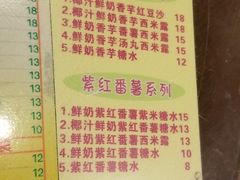 1.椰汁鲜奶香芋红豆沙
2.椰汁鲜奶香芋西米露 18
3.鲜奶香芋西米露 15
4.鲜奶香芋汤丸西米露 18
5.鲜奶香芋糖水 13
紫红番薯系列
1.鲜奶紫红番薯紫米糖水 15
2.椰汁鲜奶紫红番薯糖水 13
3.鲜奶紫红番薯西米露 13
4.鲜奶紫红番薯糖水 10
5.紫红番薯糖水 8
12
13
12
13
12